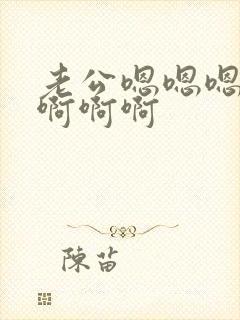 老公嗯嗯嗯
啊啊啊
陳苗